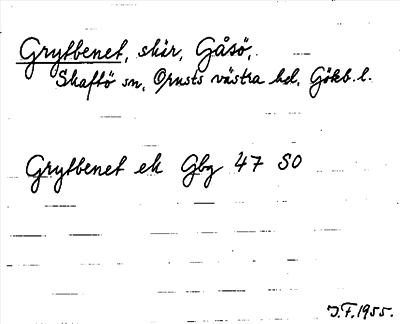 Grytbenet, skär, Gåsö,
Skaftö sn, Orusts västra hd, Götkb. l.
Grytbenet ek Gbg 47 SO
J.F. 1955.